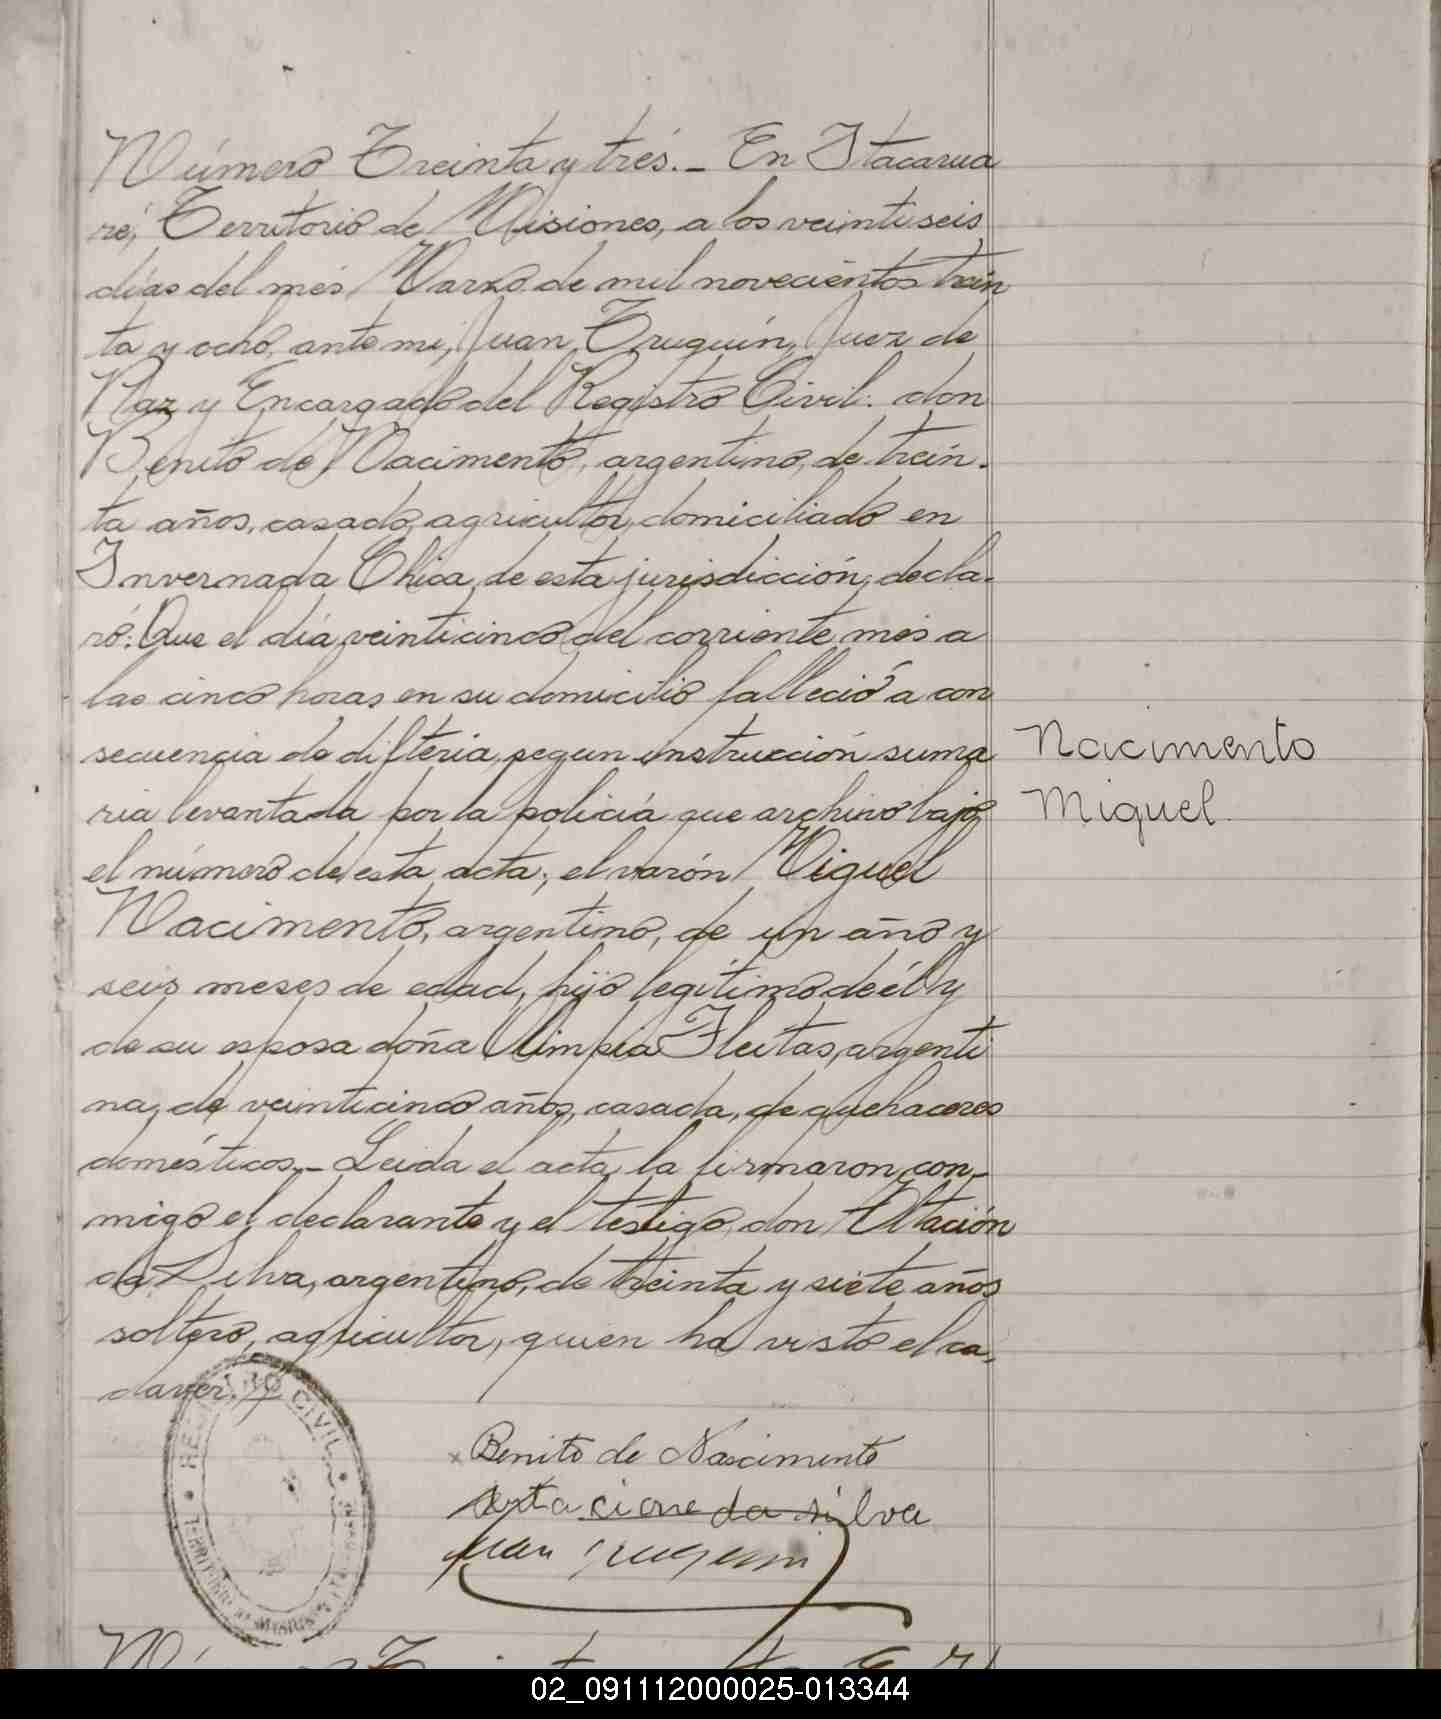 Número Treinta y trés.- En Itacarua
ré, Territorio de Misiones, a los veintiseis
días del més Marzo de mil novecientos trein
ta y ocho, ante mi, Juan Truguin, Juez de
Paz y Encargado del Registro Civil: don
Benito de Nacimento, argentino, de trein-
ta años, casado, agricultor, domiciliado en
Invernada Chica, de esta jurisdicción, decla-
ró: Que el día veinticinco del corriente mes a
las cinco horas en su domicilio falleció a con
secuencia de difteria, segun instrucción suma
ria levantada por la policia que archivo bajo
el número de esta acta, el varón Miguel
Nacimento, argentino, de un año y
seis meses de edad, hijo legítimo de él y
de su esposa doña Olimpia Fleitas, argenti
na, de veinticinco años, casada, de quehaceres
domésticos.- Leida el acta, la firmaron con-
migo el declarante y el testigo, don
da Silva, argentino, de treinta y siete años
soltero, agricultor, quien ha visto el ca-
daver.
Nacimento
Miguel.
Benito de Nascimento
da silva
Juan Truguin
REGISTRO CIVIL
TERRITORIO de MISIONES
02_091112000025-013344